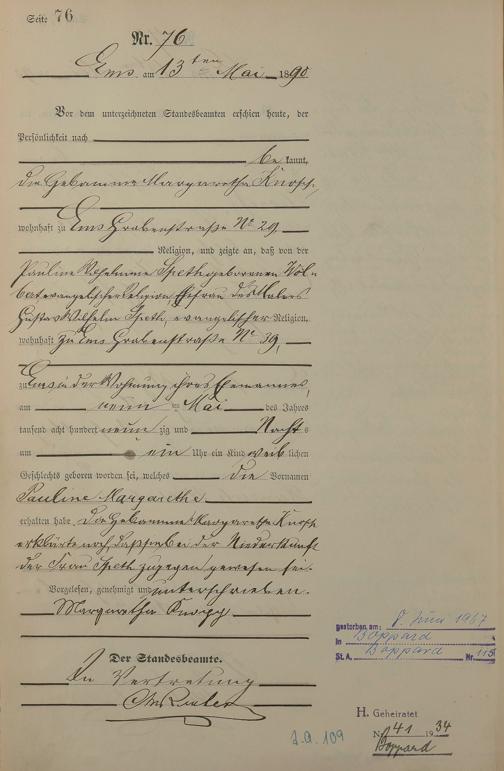 Seite 76
Nr. 76
Ems am 13ten Mai 1890
Vor dem unterzeichneten Standesbeamten erschien heute, der
Persönlichkeit nach
be kannt,
die Hebamme Margaretha Knopp,
wohnhaft zu Ems Grabenstraße No 29
Religion, und zeigte an, daß von der
Pauline Wilhelmine Speth geborenen
evangelischer Religion Ehefrau des
Gustav Wilhelm Speth, evangelischer Religion,
wohnhaft zu Ems Grabenstraße No 39,
zu Ems in der Wohnung ihres Ehemannes,
am neun ten Mai des Jahres
tausend acht hundert neun zig und Nachts
um ein Uhr ein Kind weib lichen
Geschlechts geboren worden sei, welches die Vornamen
Pauline Margarethe
erhalten habe. Die Hebamme Margaretha Knopp
erklärte noch, daß sie bei der Niederkunft
der Frau Speth zugegen gewesen sei.
Vorgelesen, genehmigt und unterschrieben.
Margaretha Knopp
Der Standesbeamte.
In Vertretung
gestorben am: 8. Juni 1967
in Boppard
St. A. Boppard Nr. 115
H. Geheiratet
Nr. 41 1934
Boppard
109